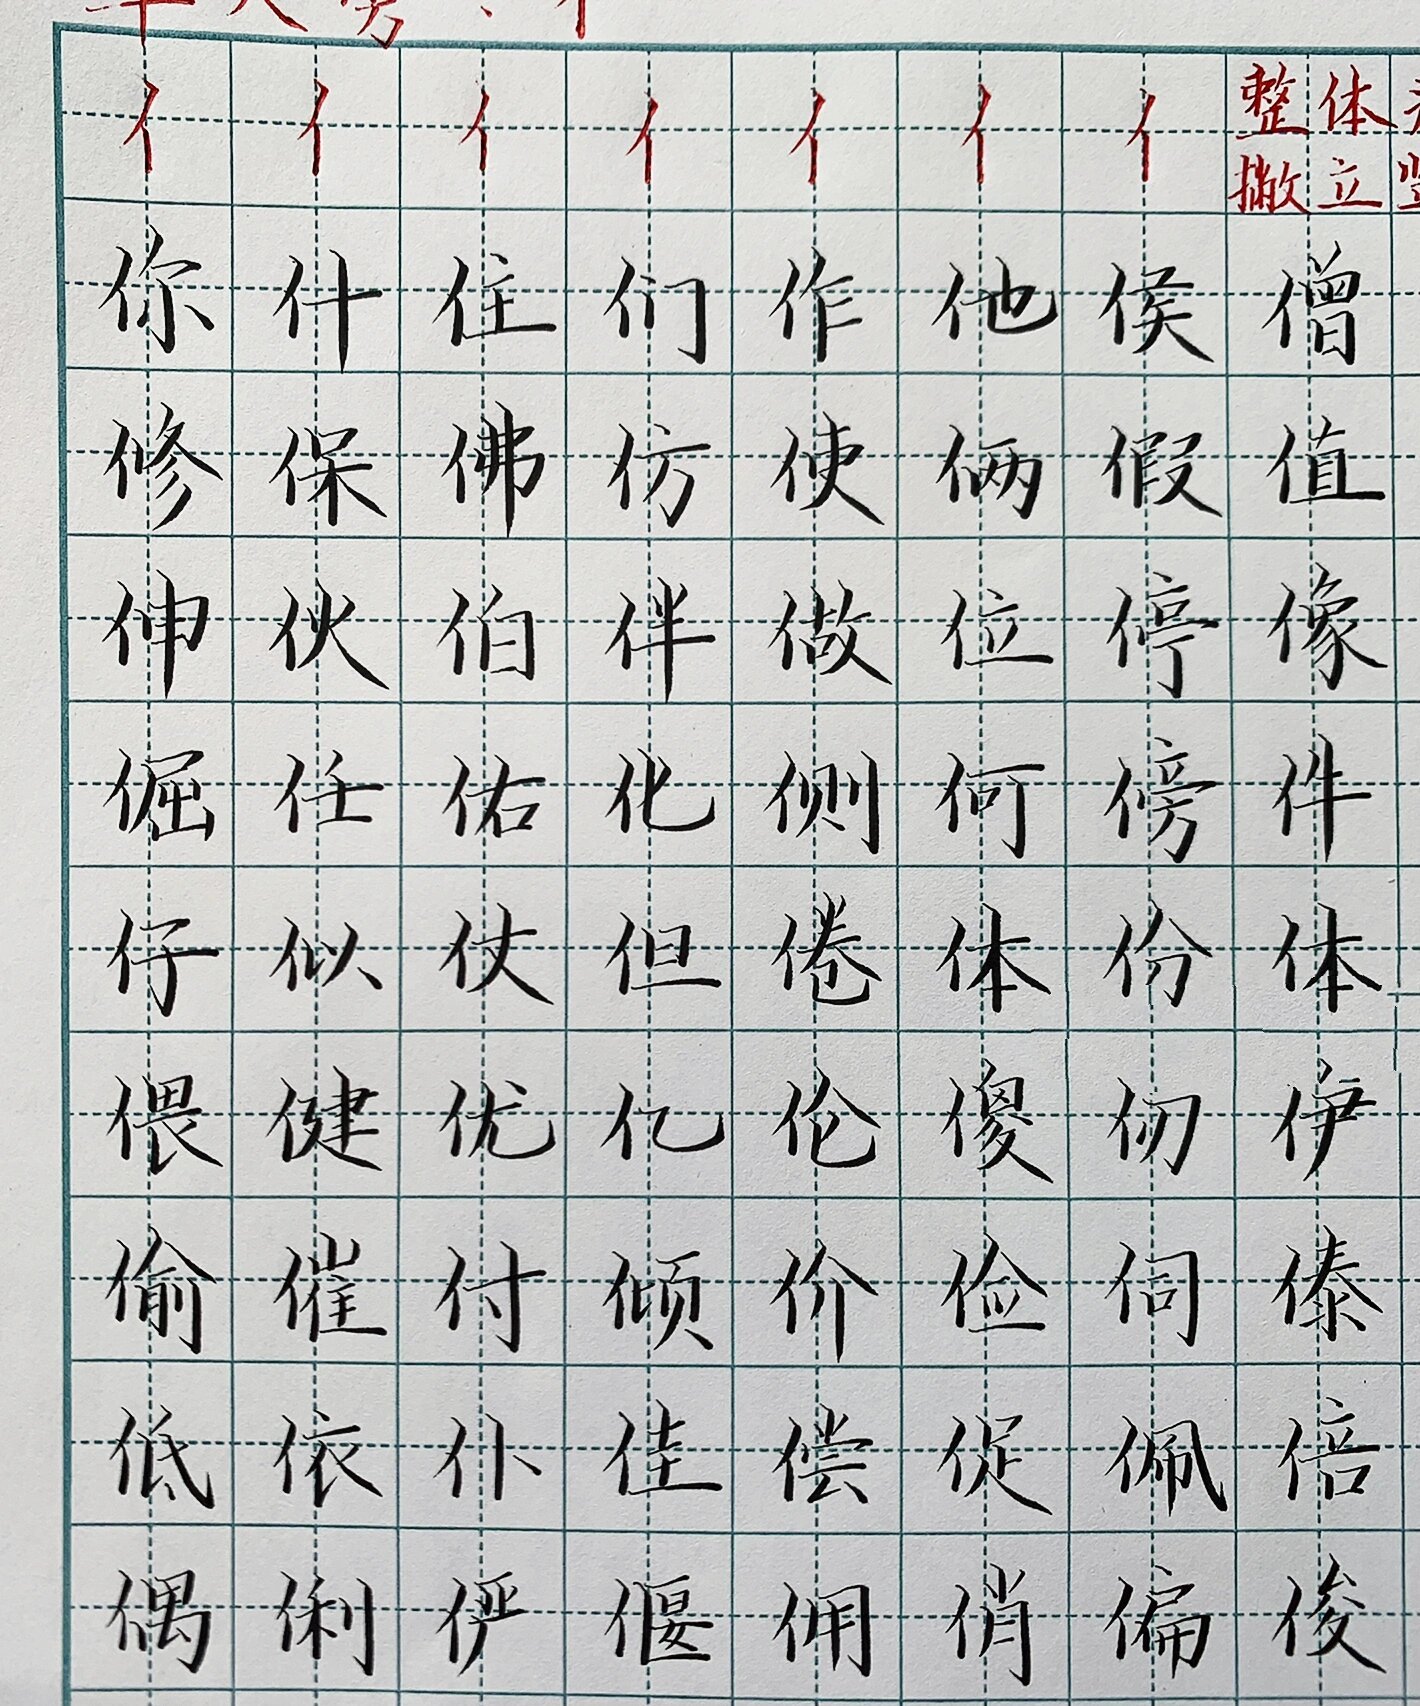 单人旁：亻
亻亻亻亻亻亻亻整体
撇立竖
你什住们作他侯僧
修保佛仿使俩假值
伸伙伯伴做位停像
倔任佑化侧何傍件
仔似仗但倦体份体
偎健优亿伦傻仞伊
偷催付倾价俭伺傣
低依仆佳偿促佩倍
偶俐俨偃佣俏偏俊